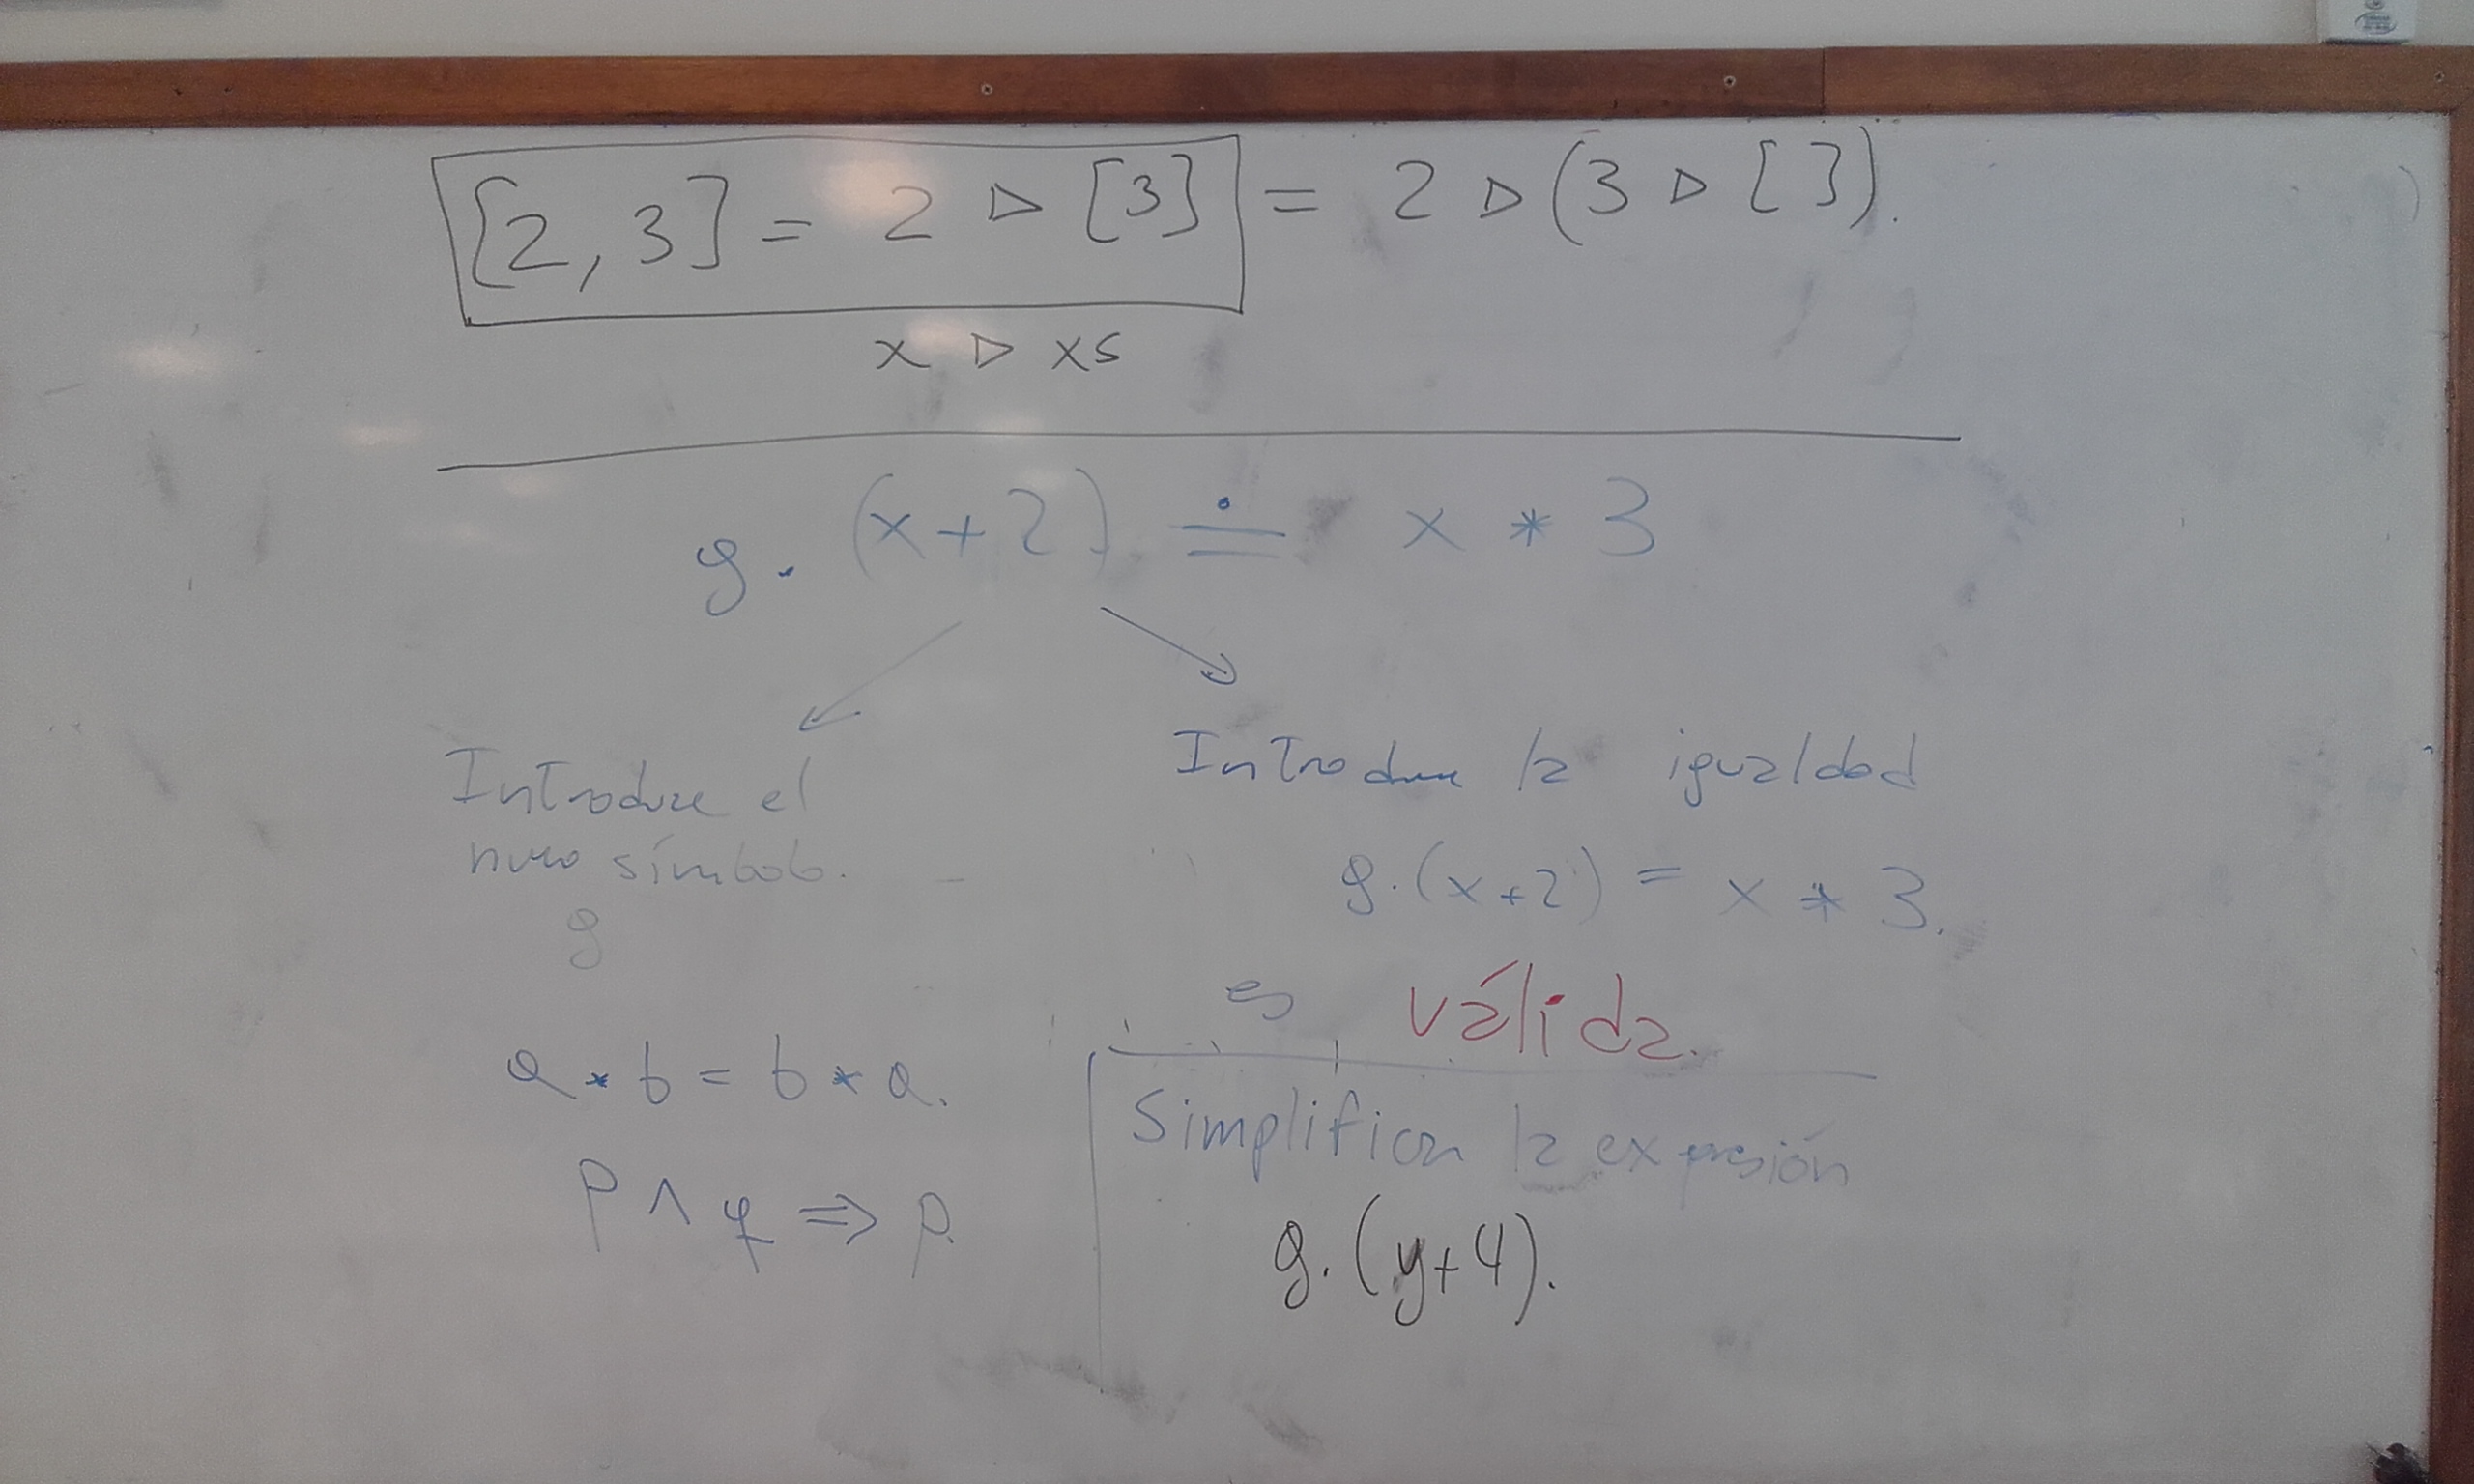 [2, 3] = 2 ▷ [3] = 2 ▷ (3 ▷ [ ]).
x ▷ xs
g. (x+2) ≐ x * 3
Introduce el
nuevo símbolo.
g
Introduce la igualdad
g.(x+2) = x * 3.
es válida.
a * b = b * a.
p ∧ q ⇒ p.
Simplificar la expresión
g. (y+4).